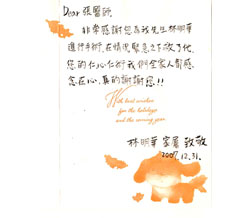 Dear 張醫師
非常感謝您為我先生林明華
進行手術,在情況緊急之下救了他,
您的仁心仁術我們全家人都感
念在心,真的謝謝您!!
With best wishes
for the holidays
and the coming year
林明華 家屬 致敬
2007.12.31.